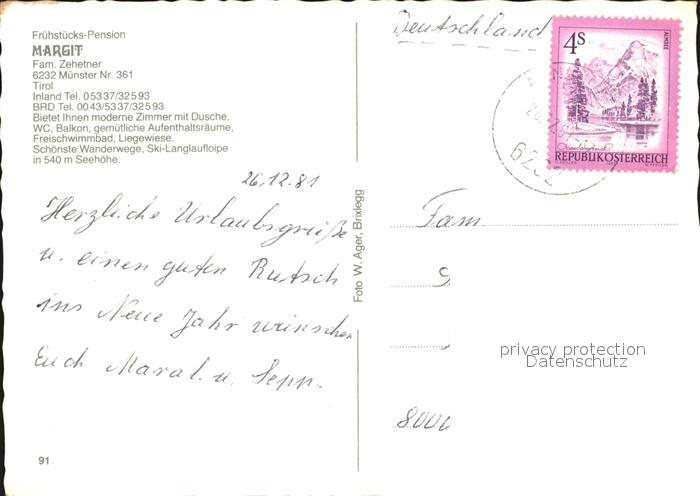 Frühstücks-Pension
MARGIT
Fam. Zehetner
6232 Münster Nr. 361
Tirol
Inland Tel. 05337/32593
BRD Tel. 0043/5337/32593
Bietet Ihnen moderne Zimmer mit Dusche,
WC, Balkon, gemütliche Aufenthaltsräume,
Freischwimmbad, Liegewiese.
Schönste Wanderwege, Ski-Langlaufloipe
in 540 m Seehöhe.
26.12.81
Herzliche Urlaubsgrüße
u. einen guten Rutsch
ins Neue Jahr wünschen
Euch u. Sepp.
91
Foto W. Ager, Brixlegg
Deutschland
4S
ALMSEE
REPUBLIK ÖSTERREICH
6232
Fam
privacy protection
Datenschutz